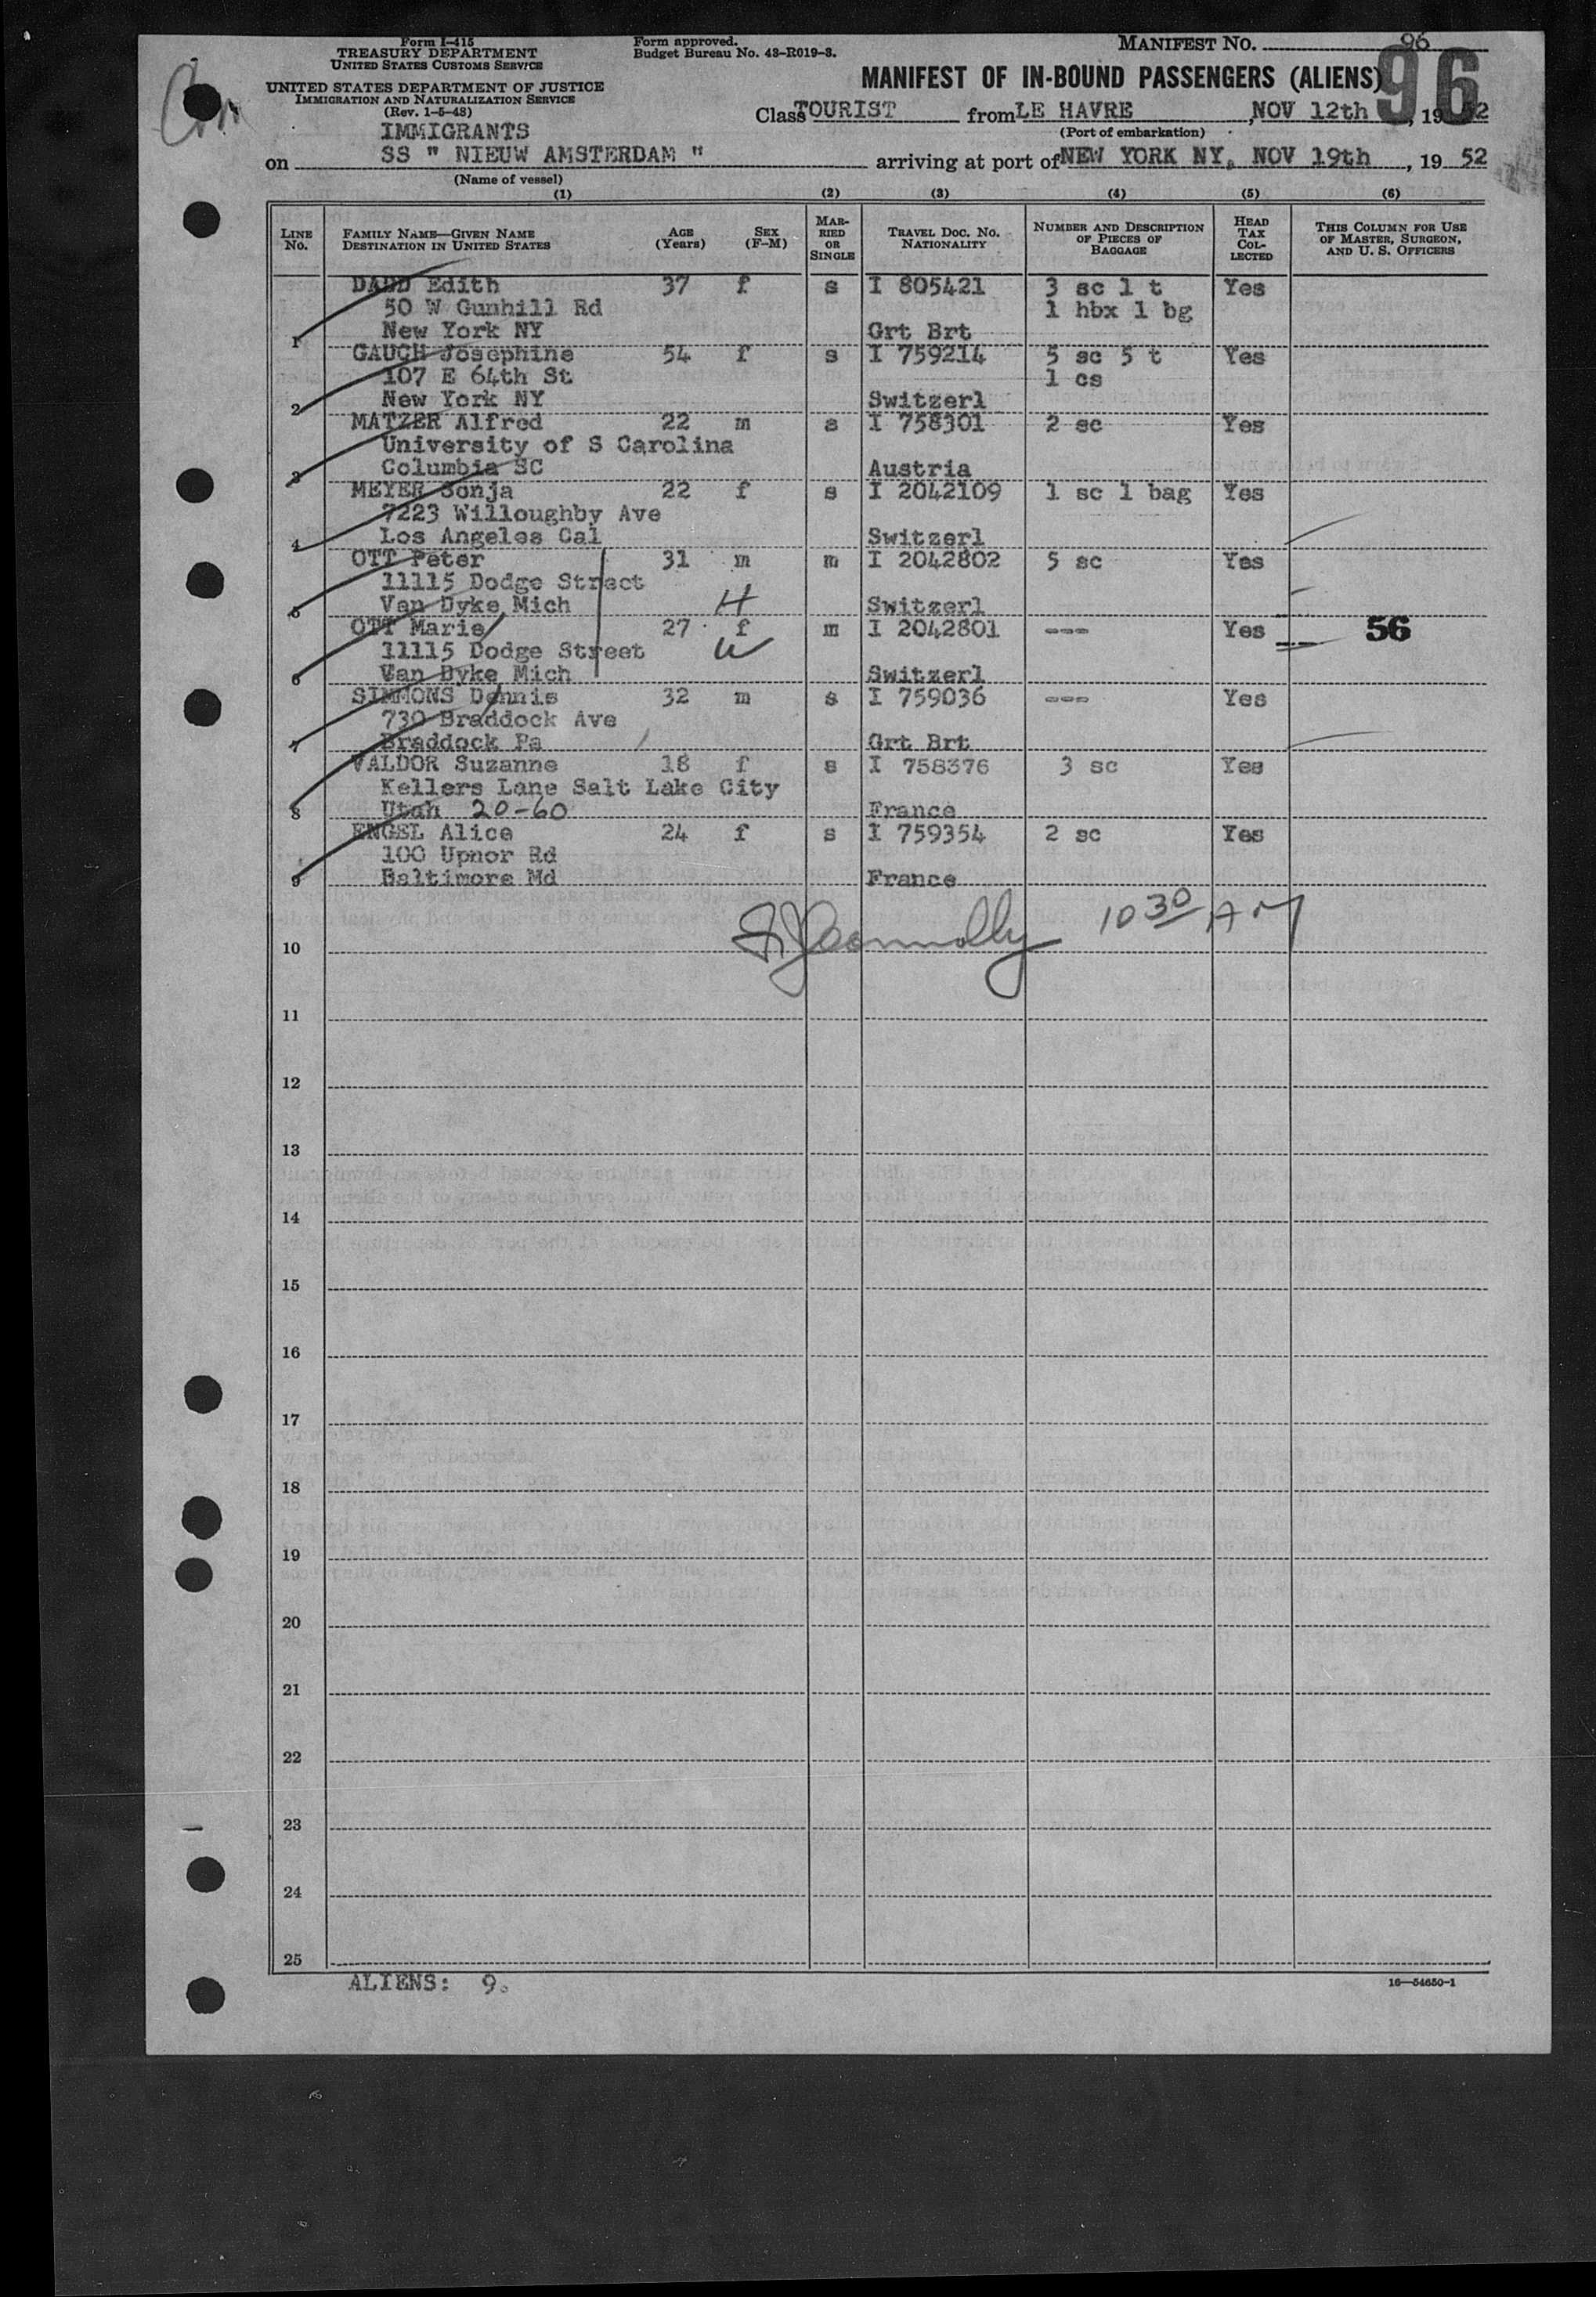 Form I-415
TREASURY DEPARTMENT
UNITED STATES CUSTOMS SERVICE
UNITED STATES DEPARTMENT OF JUSTICE
IMMIGRATION AND NATURALIZATION SERVICE
(Rev. 1-5-48)
Form approved.
Budget Bureau No. 43-R019-3.
MANIFEST NO. 96
96
MANIFEST OF IN-BOUND PASSENGERS (ALIENS)
Class TOURIST from LE HAVRE, NOV 12th, 1952
(Port of embarkation)
IMMIGRANTS
on SS " NIEUW AMSTERDAM " arriving at port of NEW YORK NY. NOV 19th, 19 52
(Name of vessel)
(1) (2) (3) (4) (5) (6)
LINE No. FAMILY NAME—GIVEN NAME DESTINATION IN UNITED STATES AGE (Years) SEX (F-M) MARRIED OR SINGLE TRAVEL DOC. NO. NATIONALITY NUMBER AND DESCRIPTION OF PIECES OF BAGGAGE HEAD TAX COLLECTED THIS COLUMN FOR USE OF MASTER, SURGEON, AND U. S. OFFICERS
DADD Edith 37 f s I 805421 3 sc 1 t Yes
50 W Gunhill Rd 1 hbx 1 bg
1 New York NY Grt Brt
GAUCH Josephine 54 f s I 759214 5 sc 5 t Yes
107 E 64th St 1 cs
2 New York NY Switzerl
MATZER Alfred 22 m s I 758301 2 sc Yes
University of S Carolina
3 Columbia SC Austria
MEYER Sonja 22 f s I 2042109 1 sc 1 bag Yes
7223 Willoughby Ave
4 Los Angeles Cal Switzerl
OTT Peter 31 m m I 2042802 5 sc Yes
11115 Dodge Street
5 Van Dyke Mich H Switzerl
OTT Marie 27 f m I 2042801 --- Yes 56
11115 Dodge Street W
6 Van Dyke Mich Switzerl
SIMMONS Dennis 32 m s I 759036 --- Yes
730 Braddock Ave
7 Braddock Pa Grt Brt
VALDOR Suzanne 18 f s I 758376 3 sc Yes
Kellers Lane Salt Lake City
8 Utah 20-60 France
ENGEL Alice 24 f s I 759354 2 sc Yes
100 Upnor Rd
9 Baltimore Md France
Connolly 10 30 AM
10
11
12
13
14
15
16
17
18
19
20
21
22
23
24
25
ALIENS: 9.
16—54650-1